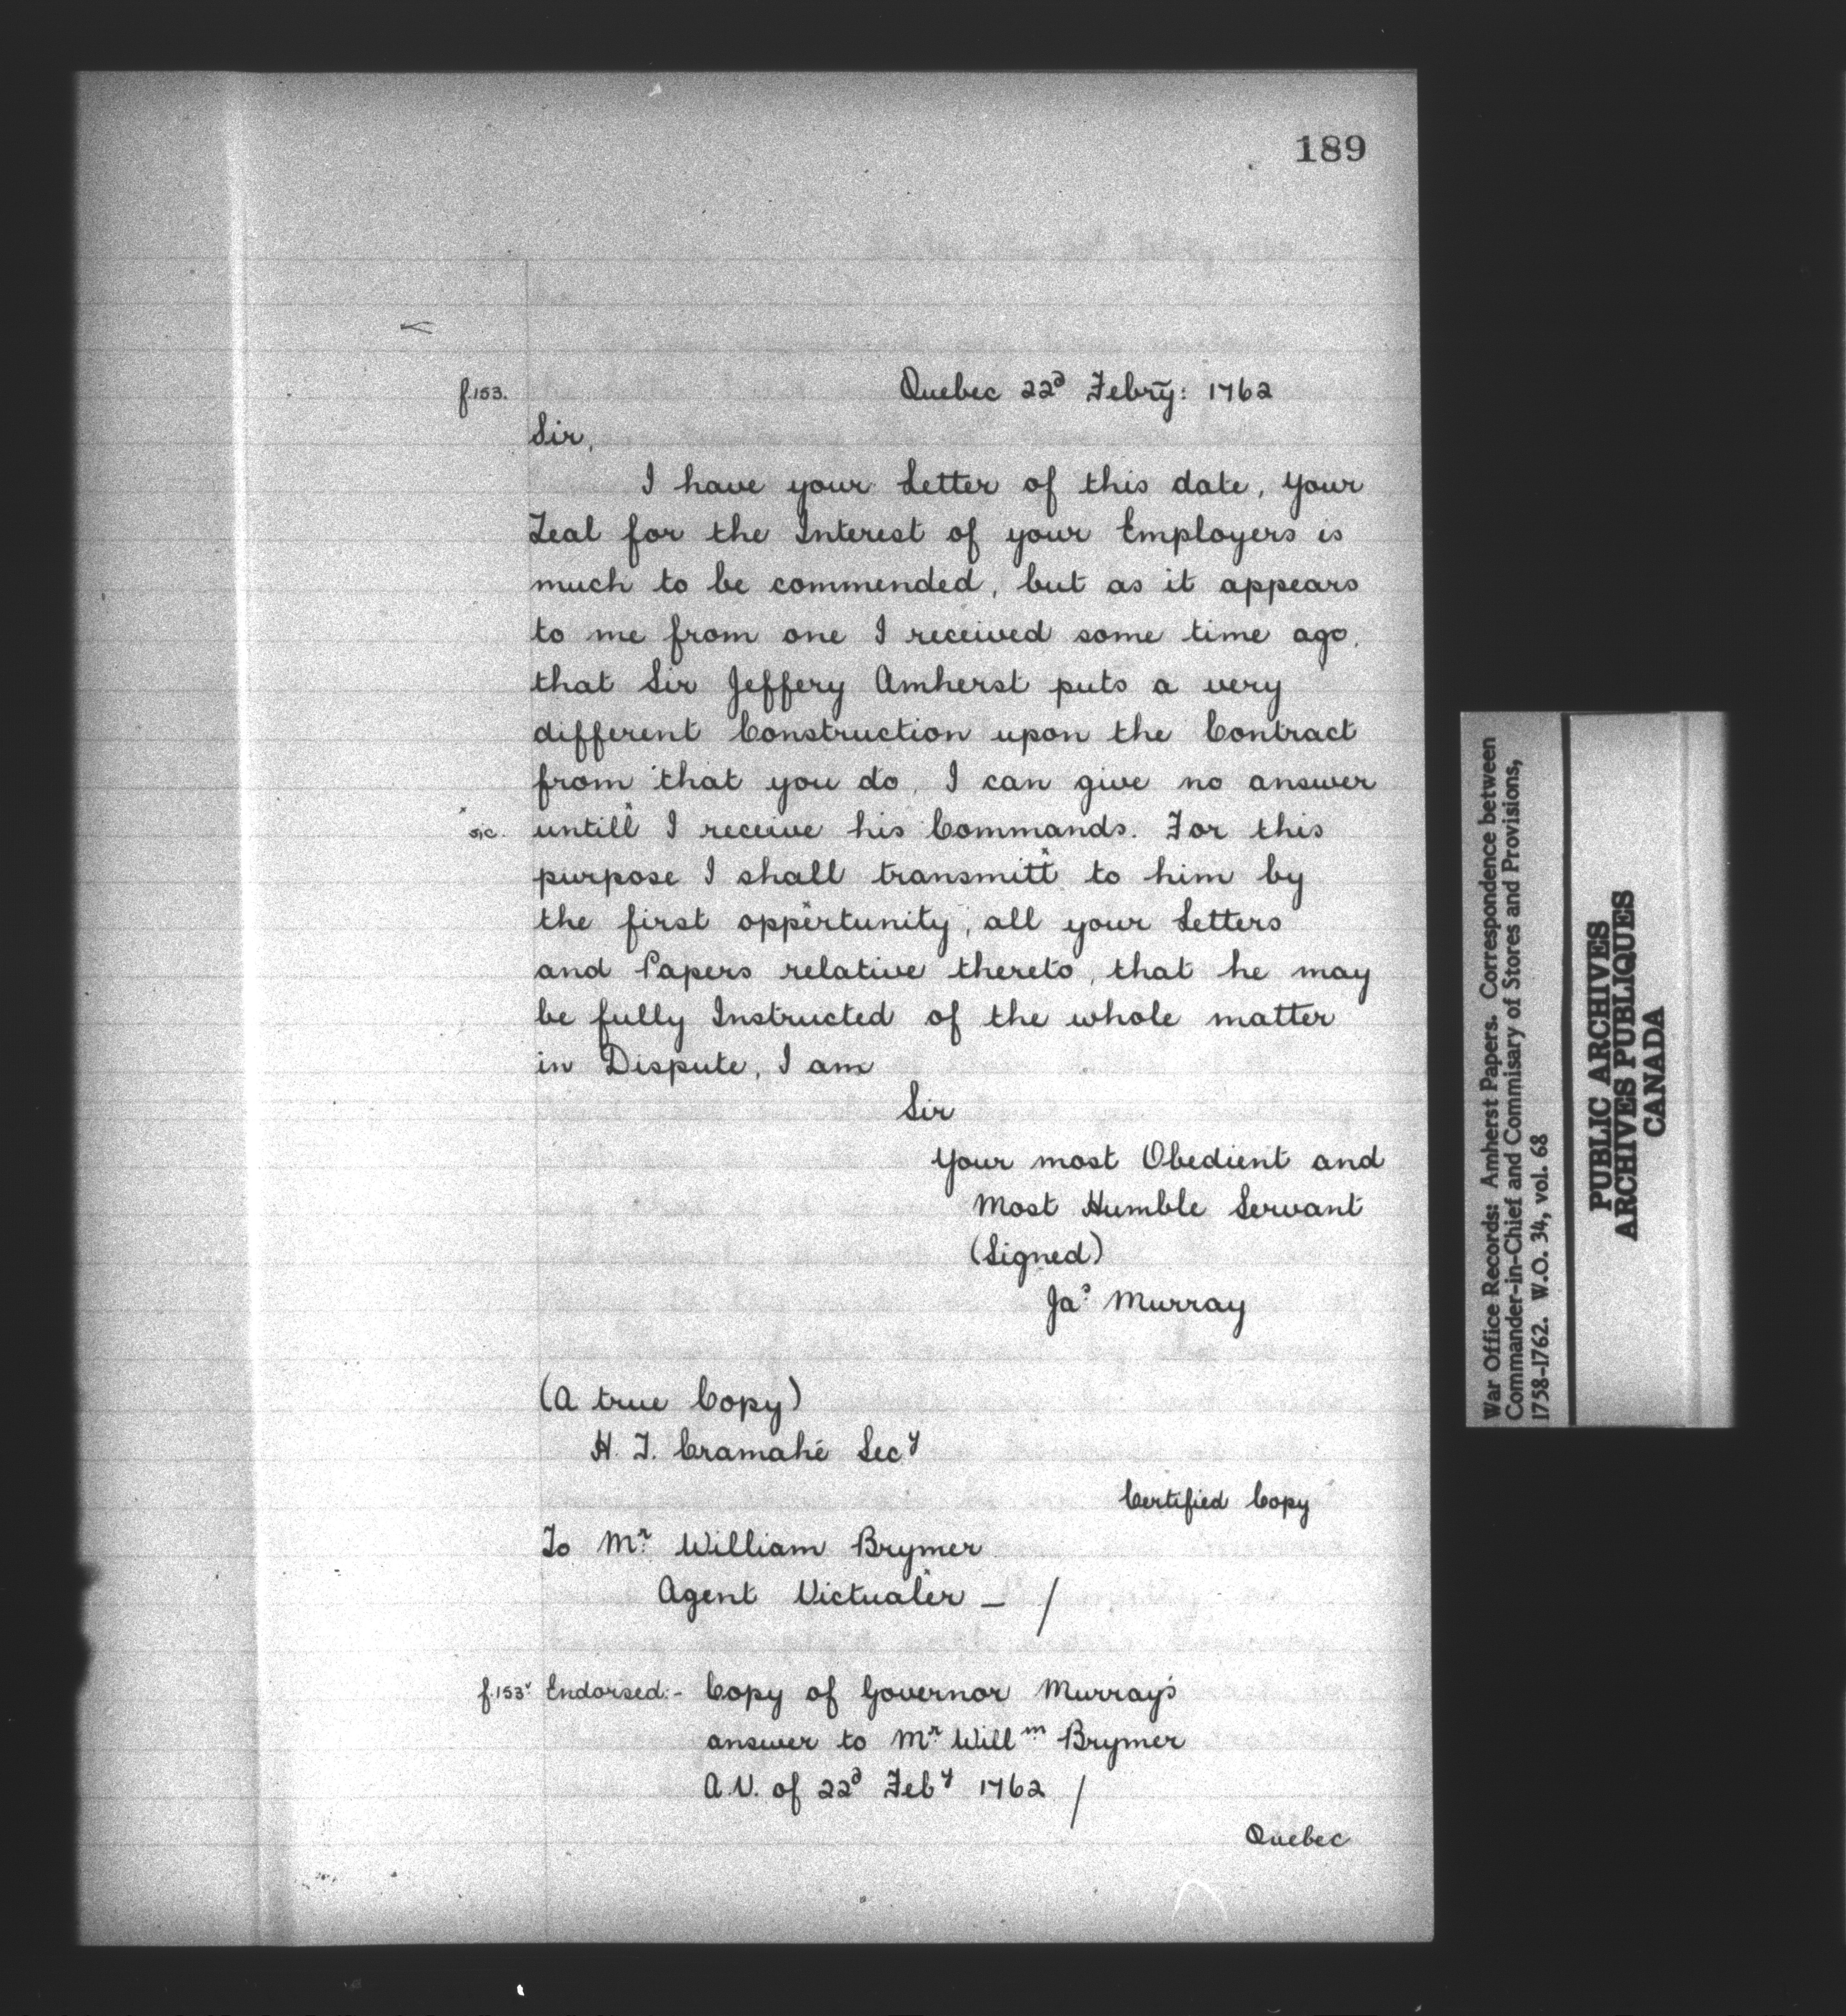 189
f.153. Quebec 22d Febry: 1762
Sir,
I have your Letter of this date, your
Zeal for the Interest of your Employers is
much to be commended, but as it appears
to me from one I received some time ago,
that Sir Jeffery Amherst puts a very
different Construction upon the Contract
from that you do, I can give no answer
x sic. untill x I receive his Commands. For this
purpose I shall transmitt x to him by
the first oppertunity x, all your Letters
and Papers relative thereto, that he may
be fully Instructed of the whole matter
in Dispute, I am
Sir
Your most Obedient and
Most Humble Servant
(Signed)
Jas Murray
(A true Copy)
H. T. Cramahé Secy
Certified Copy
To Mr. William Brymer
Agent Victualer x – /
f.153v Endorsed:- Copy of Governor Murray's
answer to Mr Willm Brymer
A.V. of 22d Feby 1762 /
Quebec
War Office Records: Amherst Papers. Correspondence between
Commander-in-Chief and Commisary of Stores and Provisions,
1758-1762. W.O. 34, vol. 68
PUBLIC ARCHIVES
ARCHIVES PUBLIQUES
CANADA